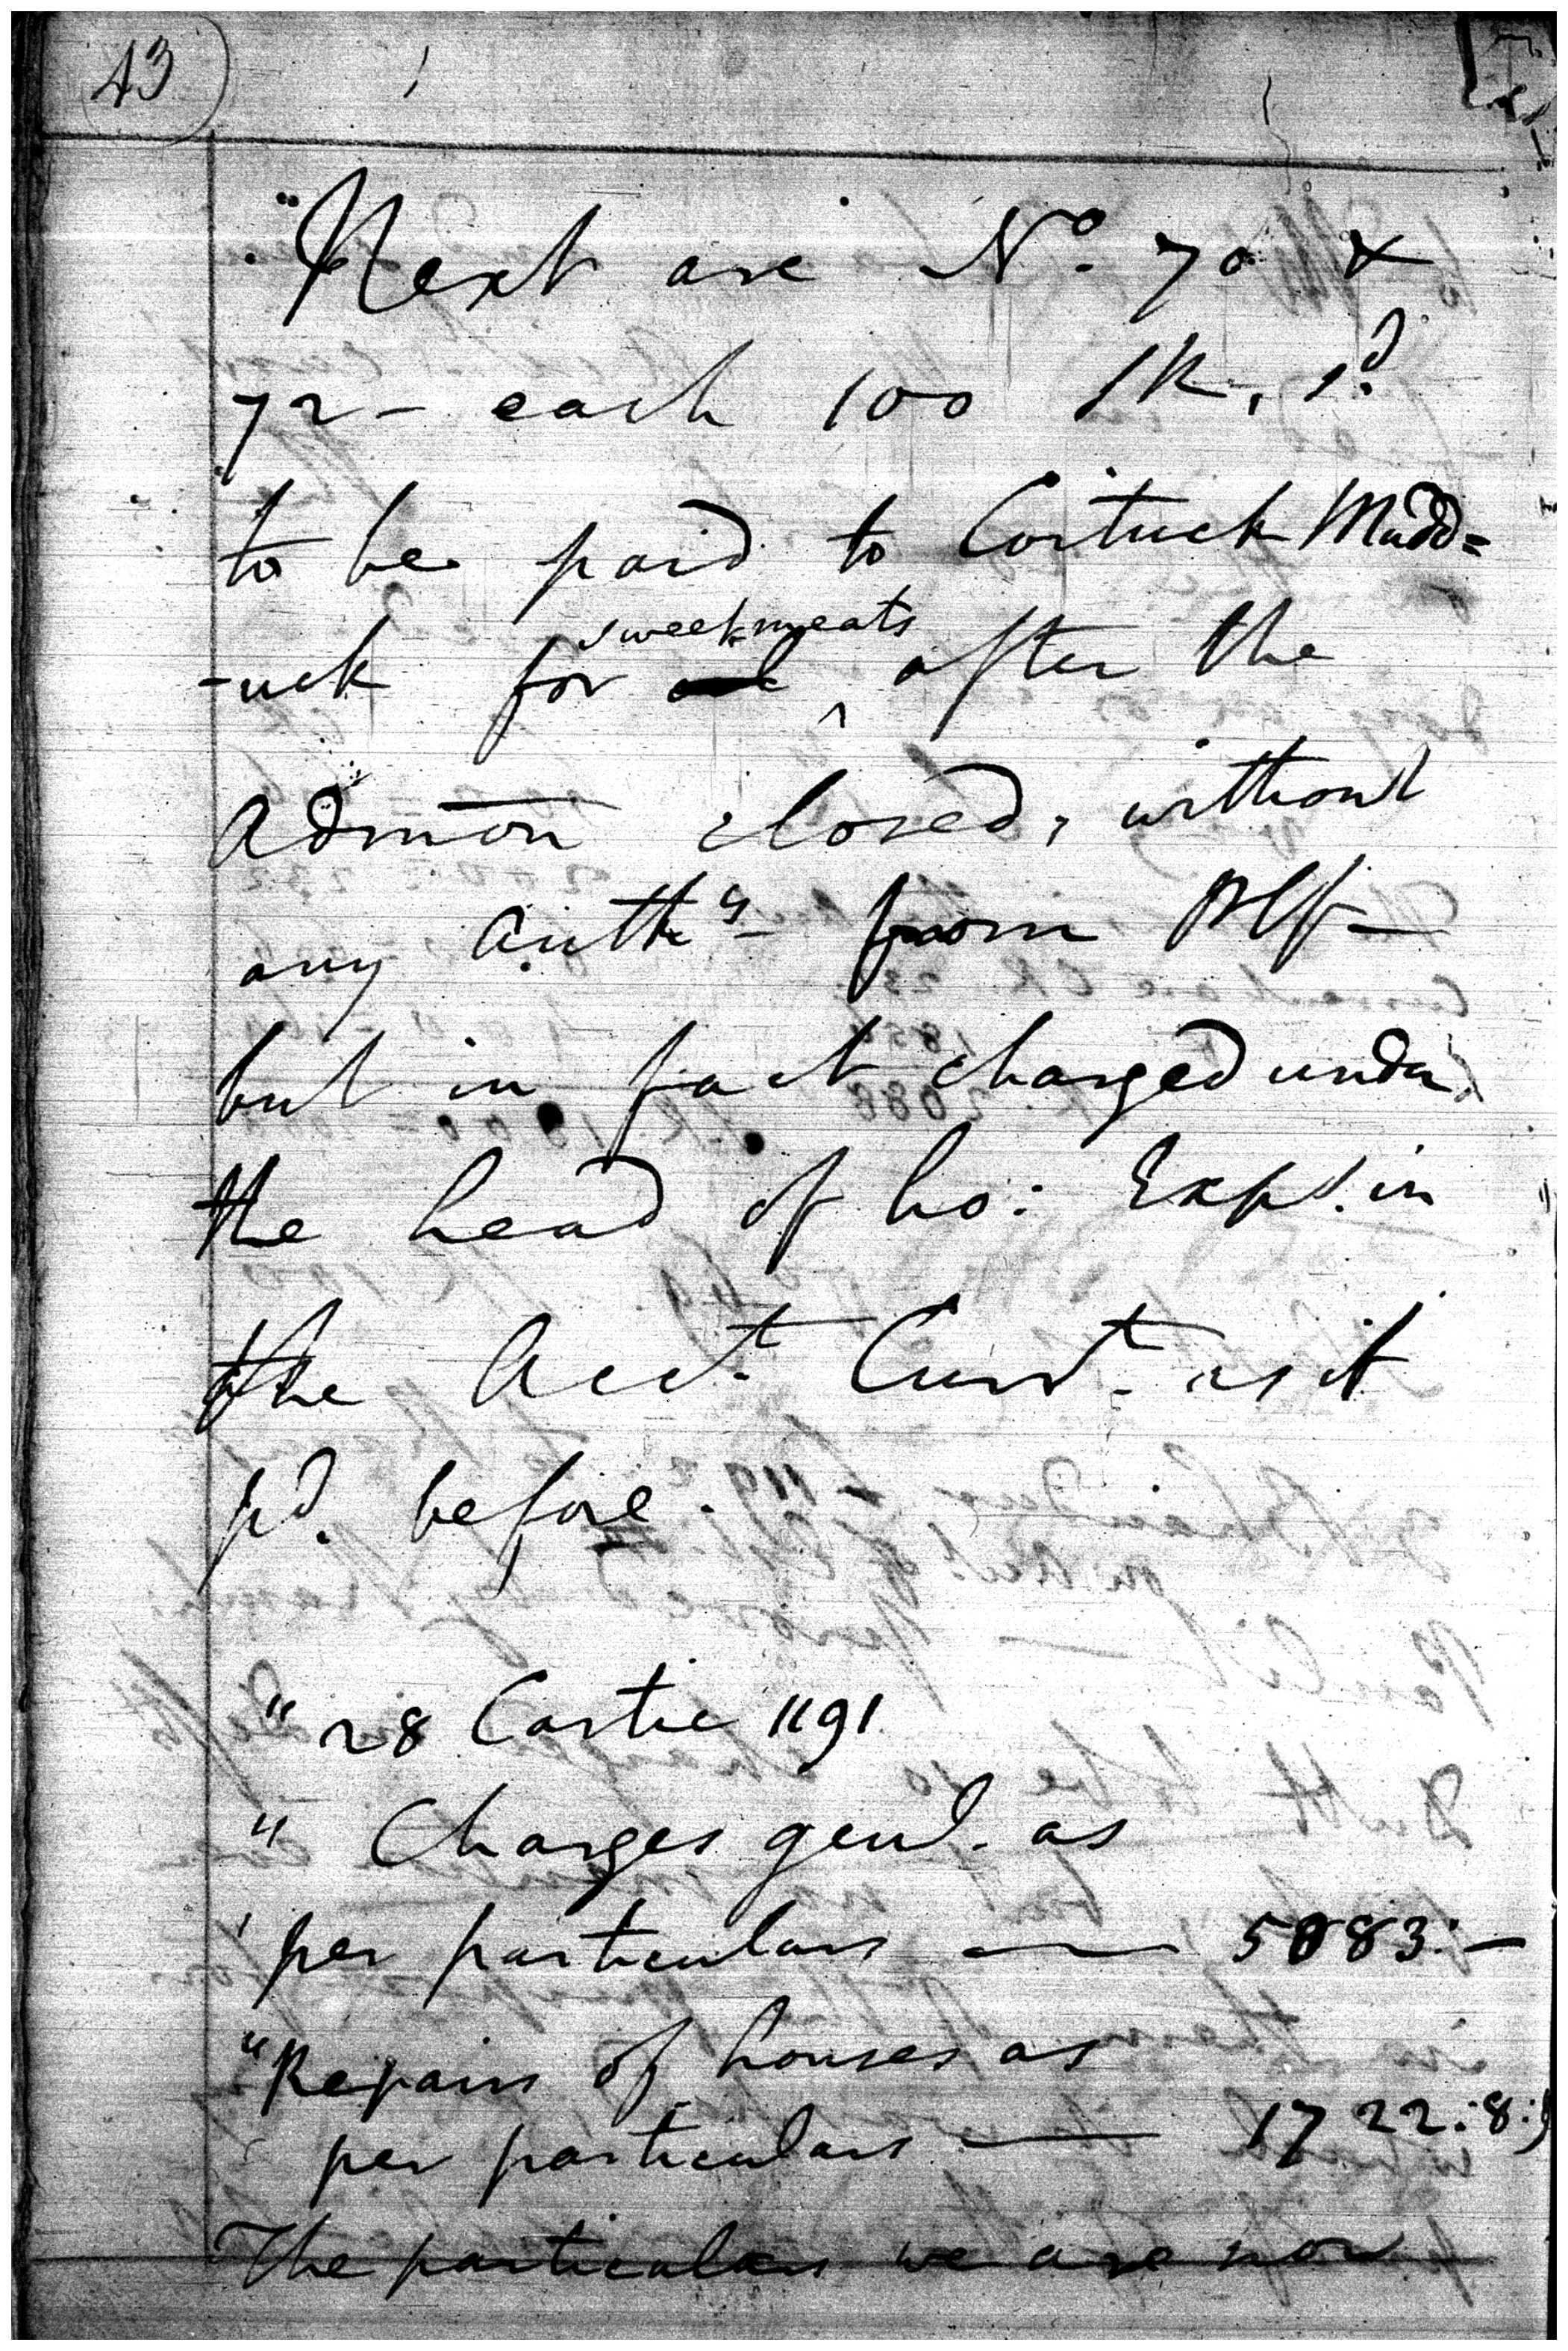 43
"Next are No. 70 &
72 - each 100 SR, sd.
to be paid to Cortuck Mudd=
-uck for sweetmeats after the
admon closed, without
any authy from Plff
but in fact charged under
the head of ho: Exps. in
the Acct. Currt. as if
pd. before.
" 28 Cartic 1191
" Charges genl. as
' per particulars — 5083:-
"Repairs of houses as
per particulars — 1722:8:
The particulars we are now